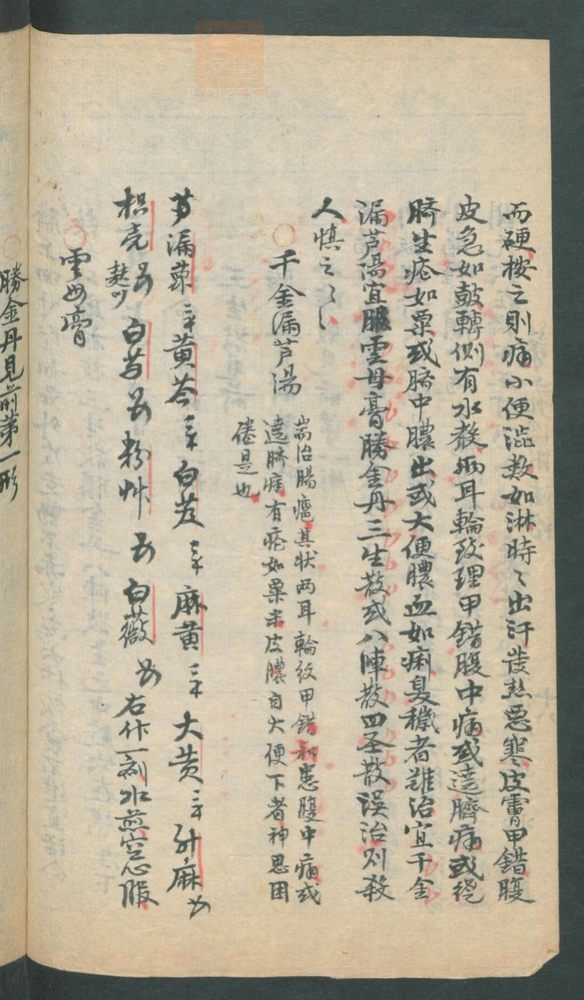 而硬按之則痛小便澁数如淋時〻出汗發热惡寒皮膚甲錯腹
皮急如鼓轉側有水聲兩耳輪致理甲錯腹中痛或遶臍痛或繞
臍生瘡如粟或臍中膿出或大便膿血如痢臭穢者難治宜千金
漏芦湯宜服雲母膏勝金丹三生散或八陣散四圣散误治则殺
人慎之〻
千金漏芦湯
耑治腸癰其状两耳輪紋甲錯初患腹中痛或
遶臍痛有瘡如粟米皮膿自大便下者神思困
倦是也
漏芦 黄芩 白芨 麻黄 大黄 升麻
枳壳 麸炒 白芍 粉艸 白薇 右作一剂水煎空心服
雲母膏
勝金丹見前第一形